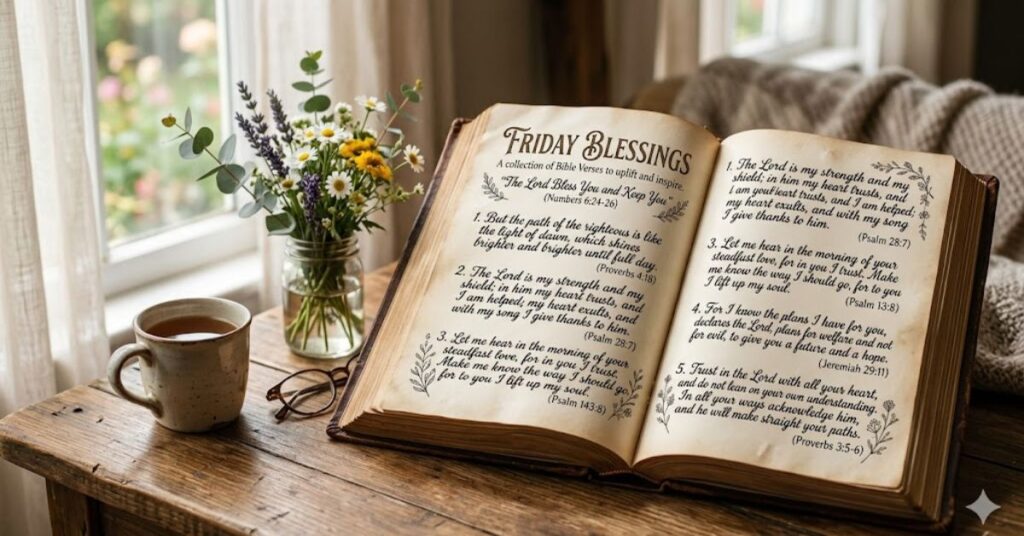 FRIDAY BLESSINGS
A collection of Bible Verses to uplift and inspire.
"The Lord Bless You and Keep You"
(Numbers 6:24-26)
1. But the path of the righteous is like
the light of dawn, which shines
brighter and brighter until full day.
(Proverbs 4:18)
2. The Lord is my strength and my
shield; in him my heart trusts, and
I am helped; my heart exults, and
with my song I give thanks to him.
(Psalm 28:7)
3. Let me hear in the morning of your
steadfast love, for in you I trust.
Make me know the way I should go,
for to you I lift up my soul.
(Psalm 143:8)
1. The Lord is my strength and my
shield; in him my heart trusts, and
I am heart trusts, and I am helped;
my heart exults, and with my song
I give thanks to him.
(Psalm 28:7)
3. Let me hear in the morning of your
steadfast love, for in you I trust. Make
me know the way I should go, for to you
I lift up my soul.
(Psalm 13:8)
4. For I know the plans I have for you,
declares the Lord, plans for welfare and not
for evil, to give you a future and a hope.
(Jeremiah 29:11)
5. Trust in the Lord with all your heart,
and do not lean on your own understanding.
In all your ways acknowledge him,
and he will make straight your paths.
(Proverbs 3:5-6)